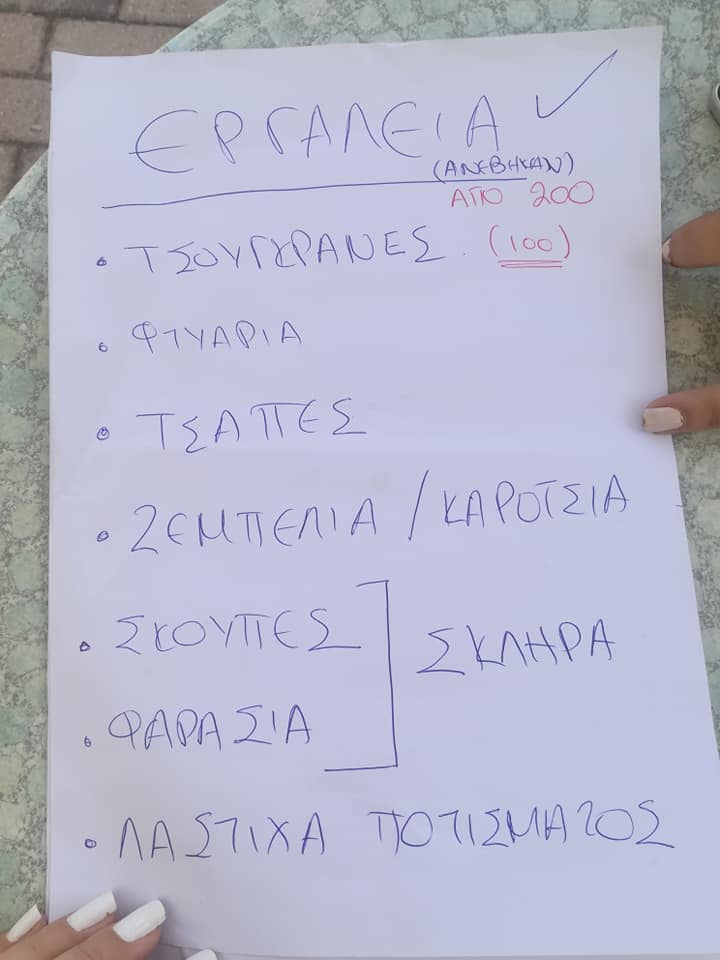 ΕΡΓΑΛΕΙΑ ✓
(ΑΝΕΒΗΚΑΝ)
ΑΠΟ 200
• ΤΣΟΥΓΚΡΑΝΕΣ. (100)
• ΦΤΥΑΡΙΑ
• ΤΣΑΠΕΣ
• ΖΕΜΠΕΛΙΑ / ΚΑΡΟΤΣΙΑ
• ΣΚΟΥΠΕΣ
ΣΚΛΗΡΑ
• ΦΑΡΑΣΙΑ
• ΛΑΣΤΙΧΑ ΠΟΤΙΣΜΑΤΟΣ